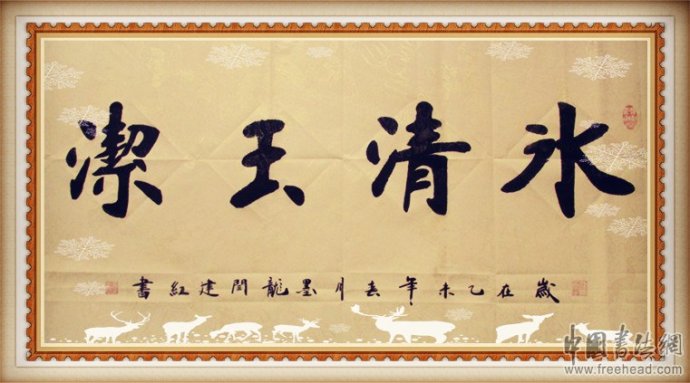 冰清玉潔
歲在乙未年月墨龍閆建紅書
中國書法網
www.freehead.com